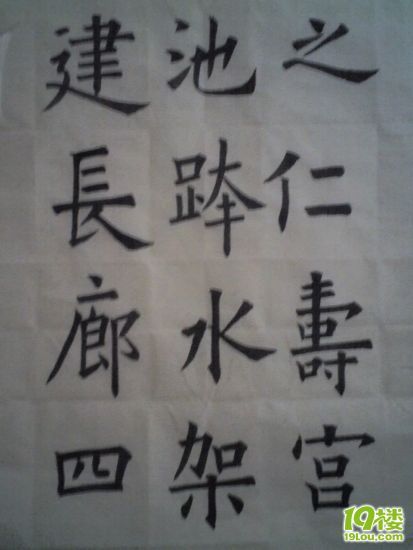 之仁壽宫
池跨水架
建長廊四
19楼
19lou.com